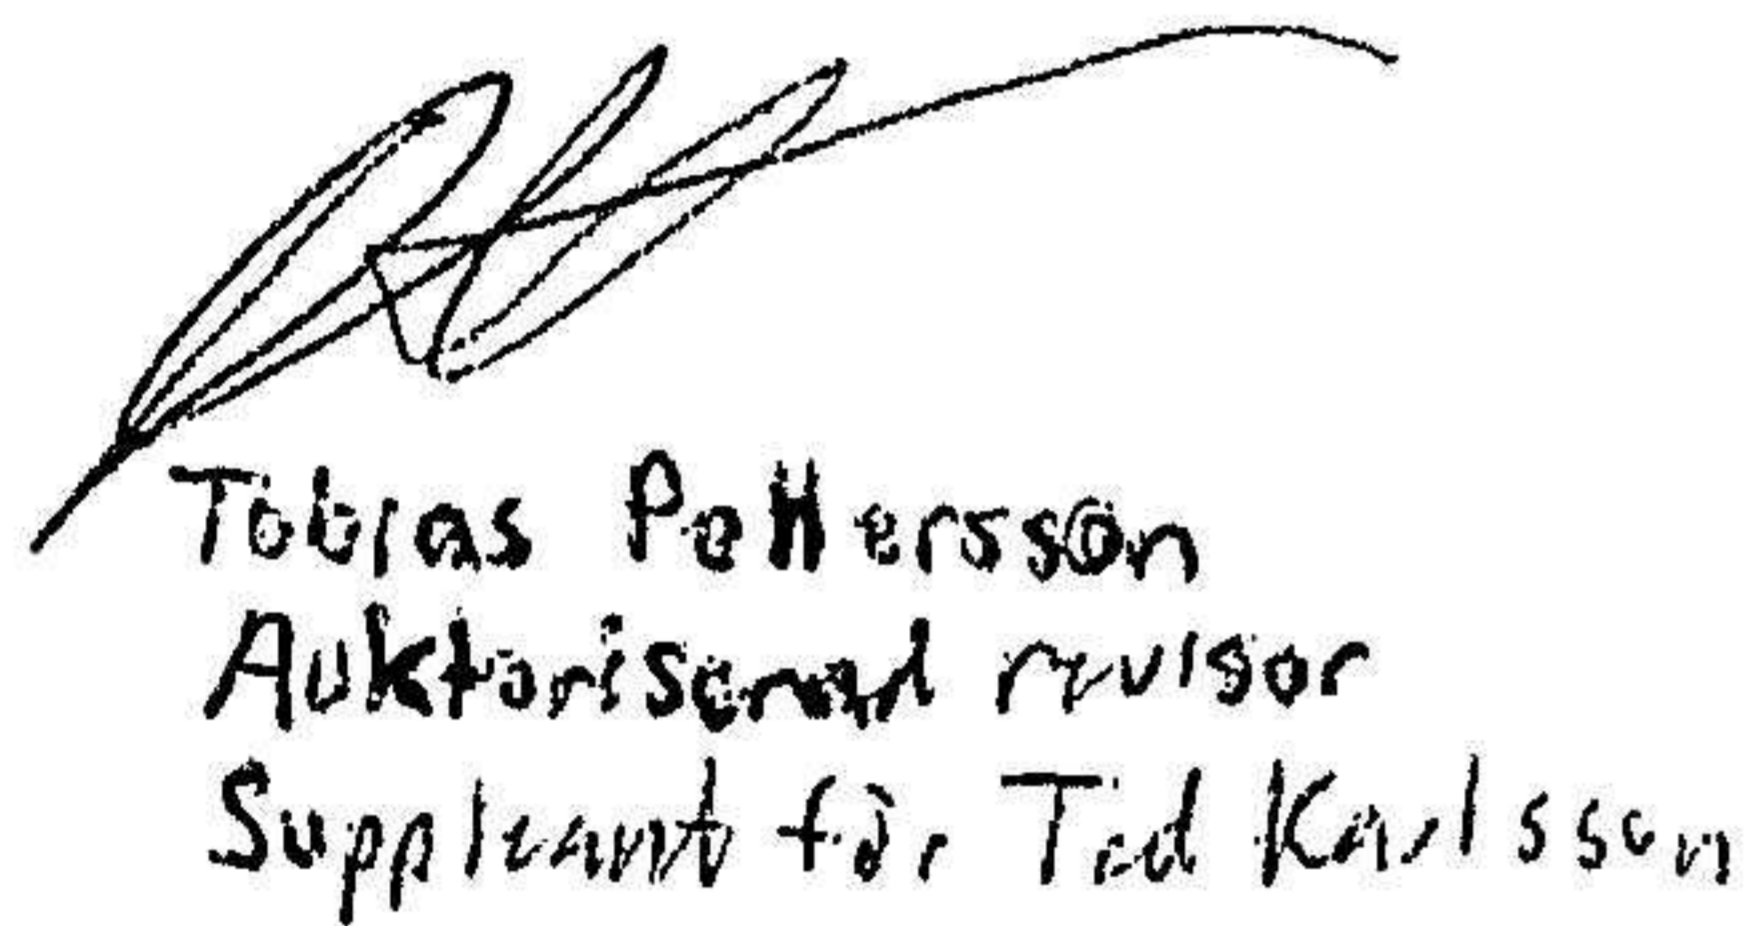 Tobias Pettersson
Auktoriserad revisor
Suppleant för Ted Karlsson